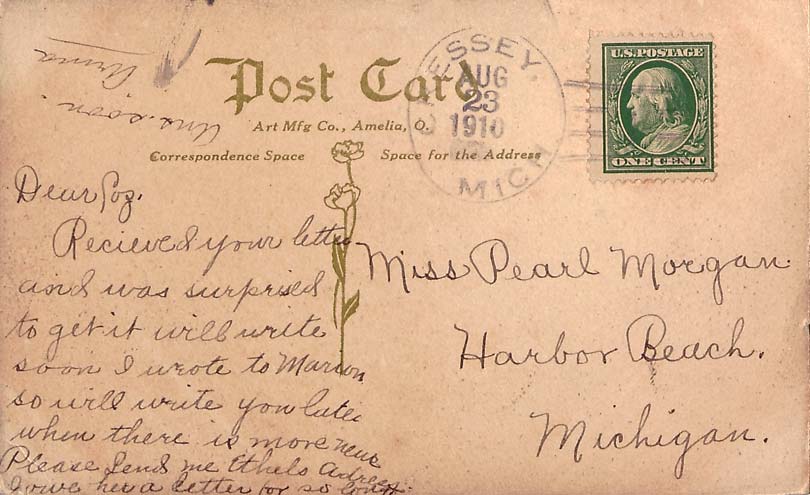 Post Card
Art Mfg Co., Amelia, O.
Correspondence Space
Space for the Address
CRESSEY.
AUG
23
1910
MICH
U.S. POSTAGE
ONE CENT
Anna
Ans. soon.
Dear Coz.
Recieved your letter
and was surprised
to get it will write
soon I wrote to Marion
so will write you later
when there is more news
Please Send me Ethels Adress
I owe her a letter for so long
Miss Pearl Morgan
Harbor Beach.
Michigan.